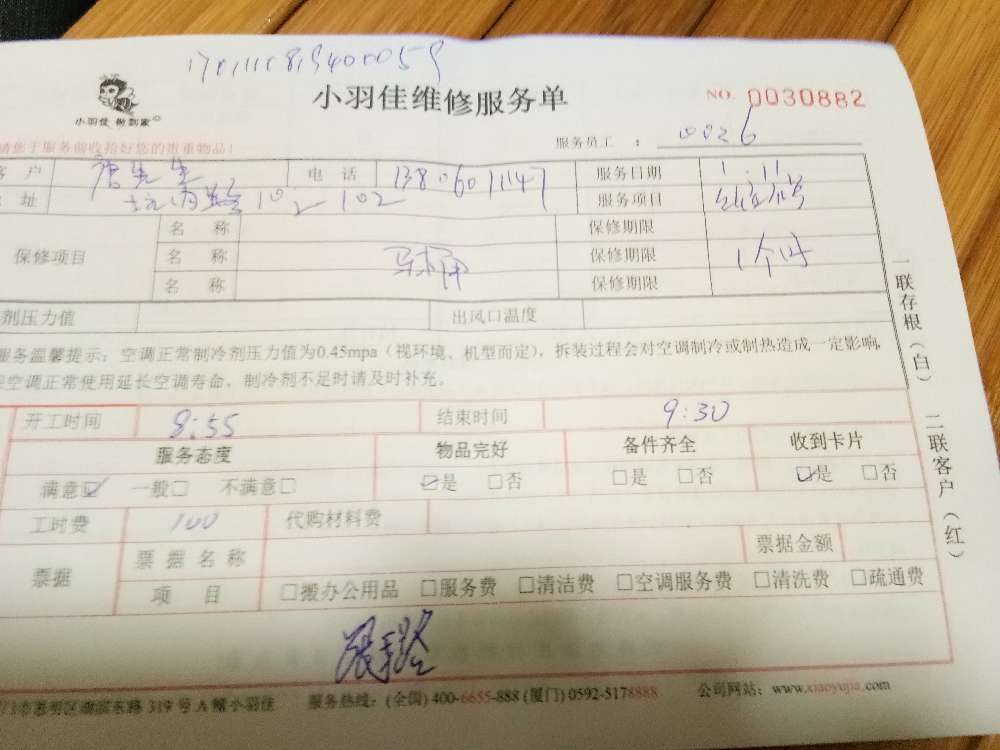 小羽佳维修服务单
NO. 0030882
小羽佳 做到家
请您于服务前收拾好您的贵重物品!
服务员工 : 0026
户 唐先生 电话 13806011147 服务日期 1.11
址 102 102 服务项目
保修项目 名称 保修期限
名称 马桶 保修期限 1个月
名称 保修期限
剂压力值 出风口温度
服务温馨提示:空调正常制冷剂压力值为0.45mpa(视环境、机型而定),拆装过程会对空调制冷或制热造成一定影响,
空调正常使用延长空调寿命,制冷剂不足时请及时补充。
开工时间 8:55 结束时间 9:30
服务态度 物品完好 备件齐全 收到卡片
满意☑ 一般□ 不满意□ ☑是 □否 □是 □否 ☑是 □否
工时费 100 代购材料费
票据 票据名称 票据金额
项目 □搬办公用品 □服务费 □清洁费 □空调服务费 □清洗费 □疏通费
门市思明区湖滨东路 319 号 A 幢小羽佳 服务热线:(全国) 400-6655-888 (厦门) 0592-5178888 公司网站:www.xiaoyujia.com
一联存根(白) 二联客户(红)